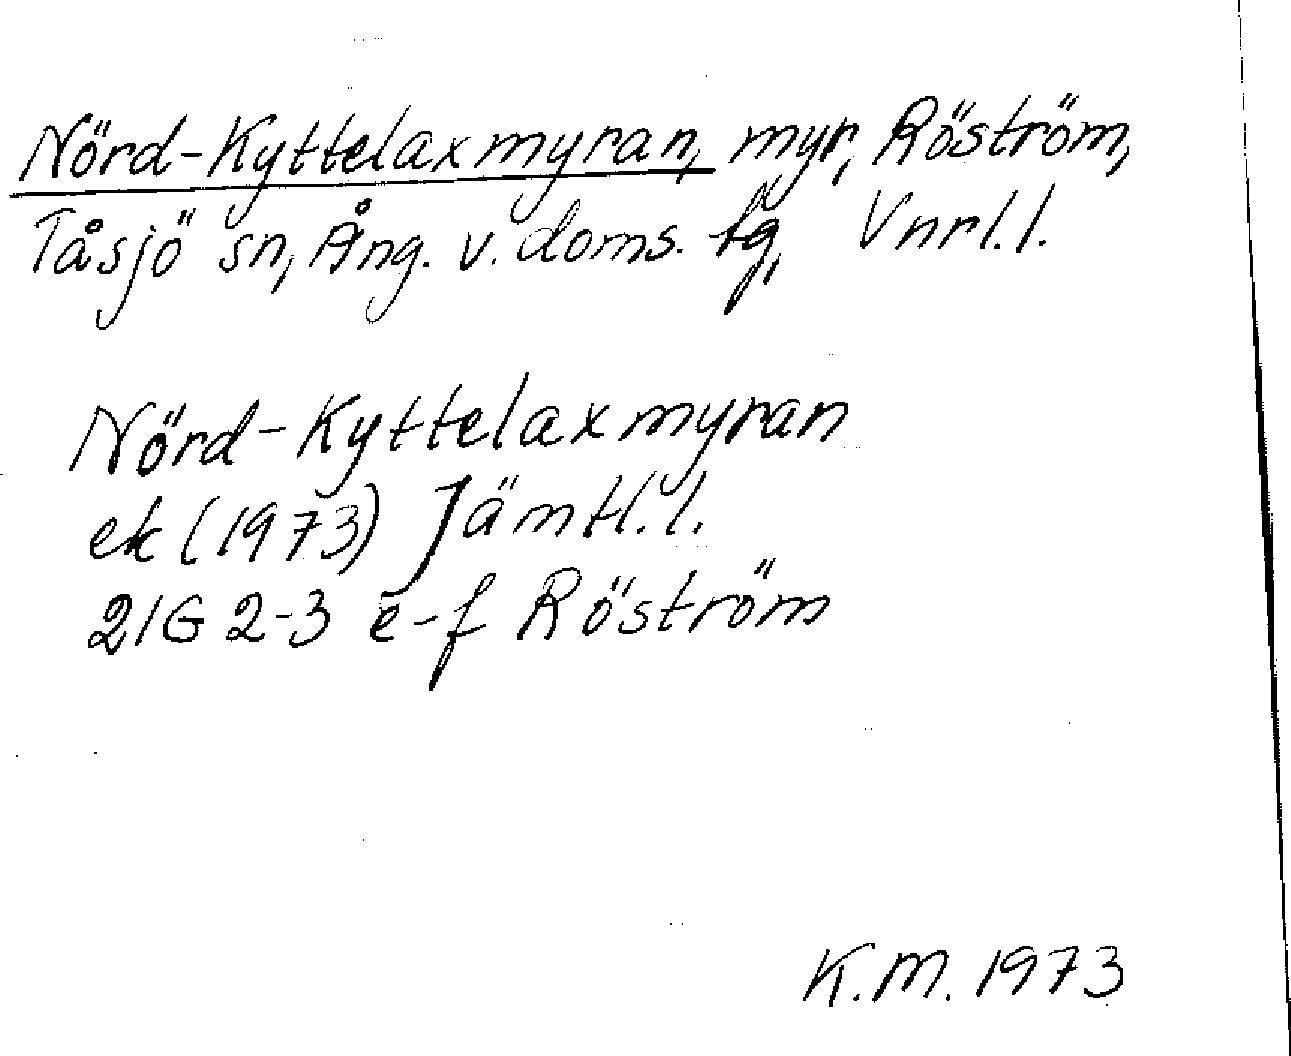 Nörd-Kyttelaxmyran, myr, Röström,
Tåsjö sn, Ång. v. doms. fg, Vnrl.l.
Nörd-Kyttelaxmyran
ek (1973) Jämtl.l.
21G 2-3 e-f Röström
K.M. 1973